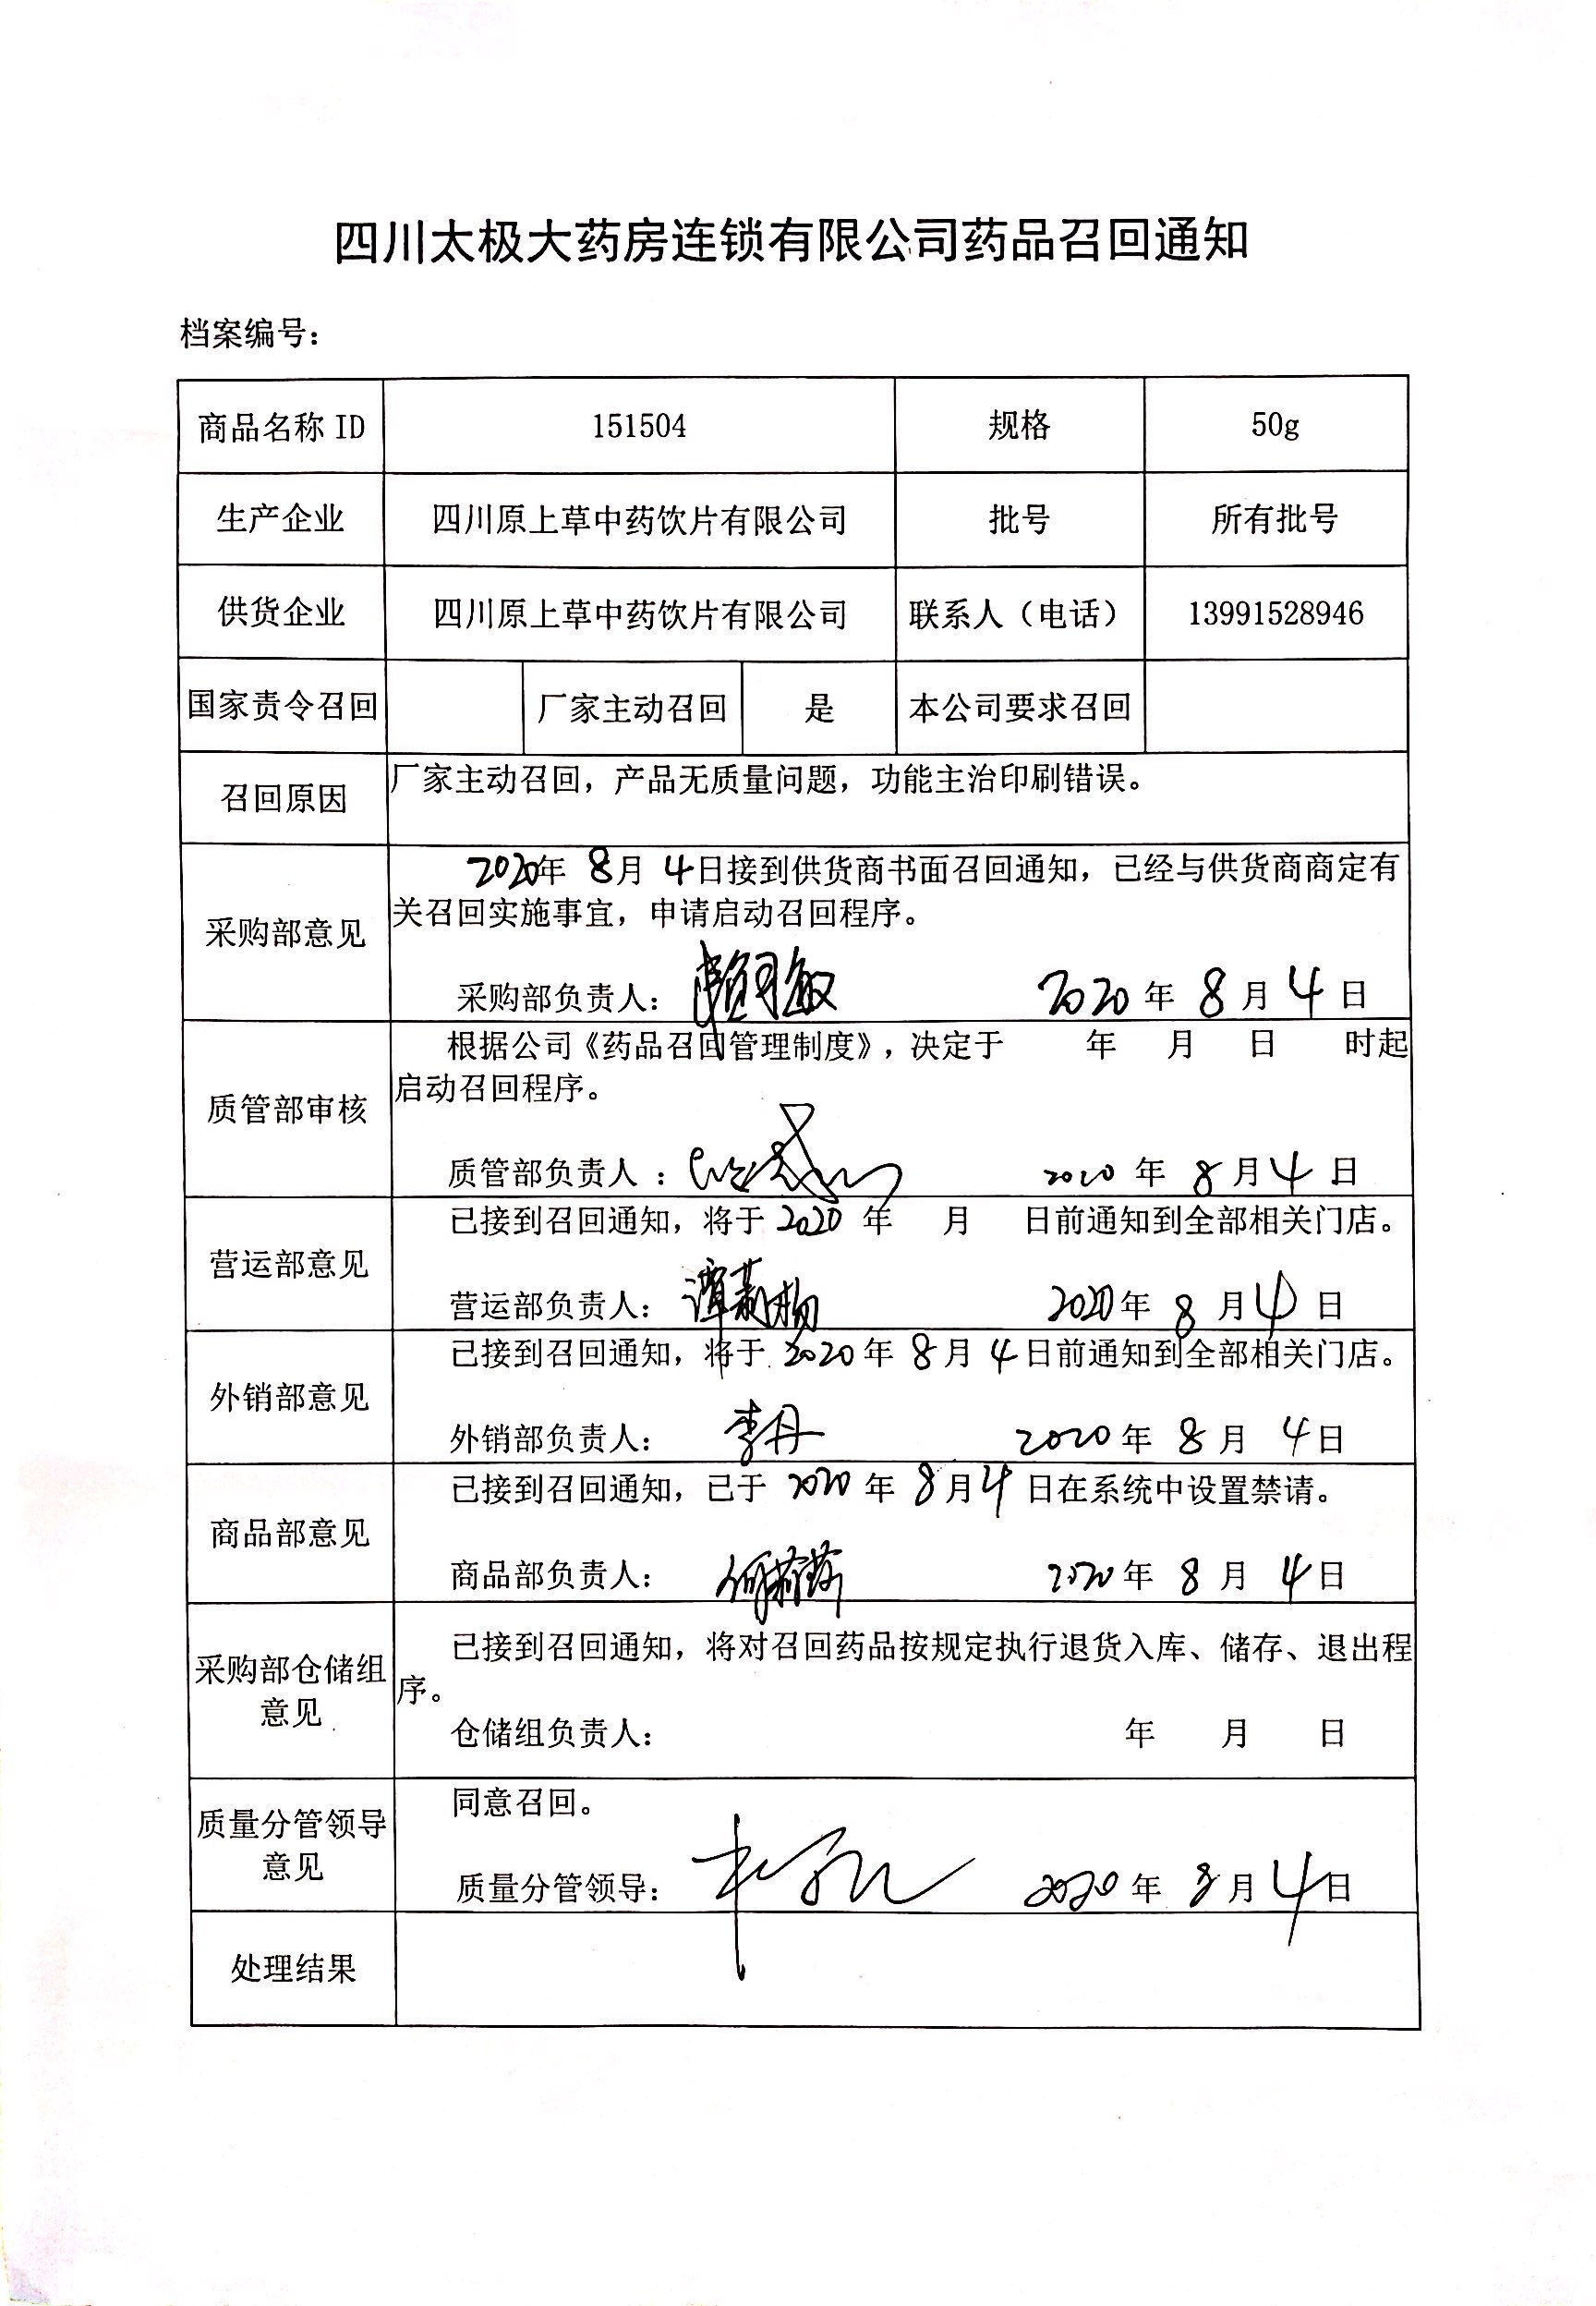 四川太极大药房连锁有限公司药品召回通知
档案编号：
商品名称 ID 151504 规格 50g
生产企业 四川原上草中药饮片有限公司 批号 所有批号
供货企业 四川原上草中药饮片有限公司 联系人（电话） 13991528946
国家责令召回 厂家主动召回 是 本公司要求召回
召回原因 厂家主动召回，产品无质量问题，功能主治印刷错误。
采购部意见
2020年 8月 4日接到供货商书面召回通知，已经与供货商商定有
关召回实施事宜，申请启动召回程序。
采购部负责人： 2020 年 8 月 4 日
质管部审核
根据公司《药品召回管理制度》，决定于 年 月 日 时起
启动召回程序。
质管部负责人 ： 2020 年 8 月 4 日
营运部意见
已接到召回通知，将于 2020 年 月 日前通知到全部相关门店。
营运部负责人： 2020年 8 月 4 日
外销部意见
已接到召回通知，将于 2020 年 8 月 4 日前通知到全部相关门店。
外销部负责人： 李丹 2020 年 8 月 4日
商品部意见
已接到召回通知，已于 2020 年 8月 4 日在系统中设置禁请。
商品部负责人： 2020 年 8 月 4日
采购部仓储组
意见
已接到召回通知，将对召回药品按规定执行退货入库、储存、退出程
序。
仓储组负责人： 年 月 日
质量分管领导
意见
同意召回。
质量分管领导： 2020 年 8 月 4日
处理结果